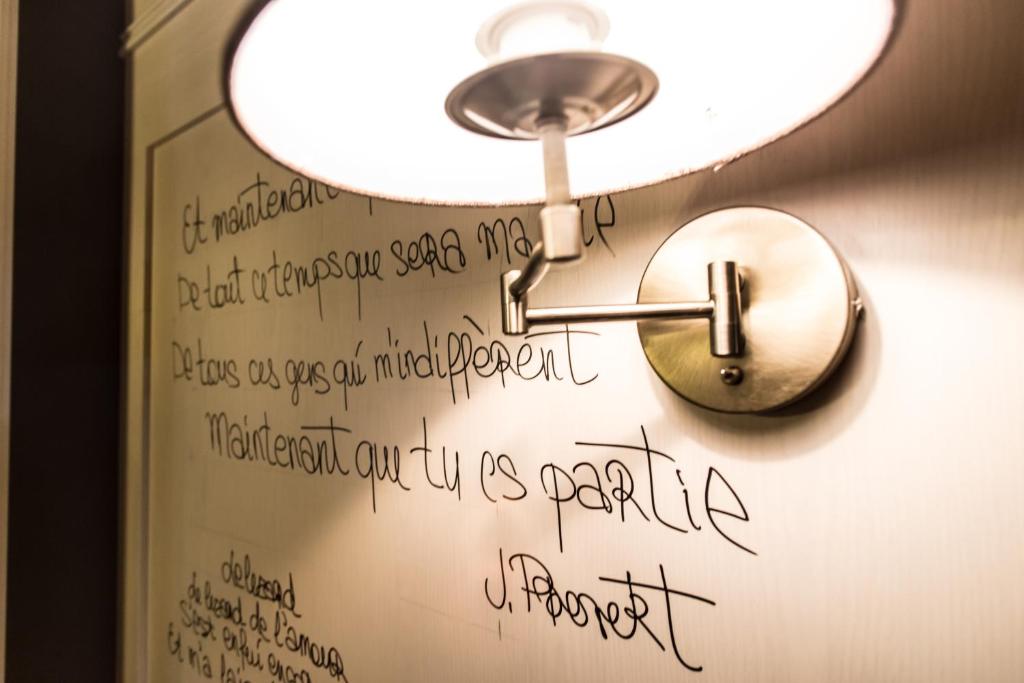 Et maintenant
De tout ce temps que sera ma vie
De tous ces gens qui m'indiffèrent
Maintenant que tu es partie
J. Prevert
de lezard
de lezard de l'amour
S'est enfui encore
Et m'a